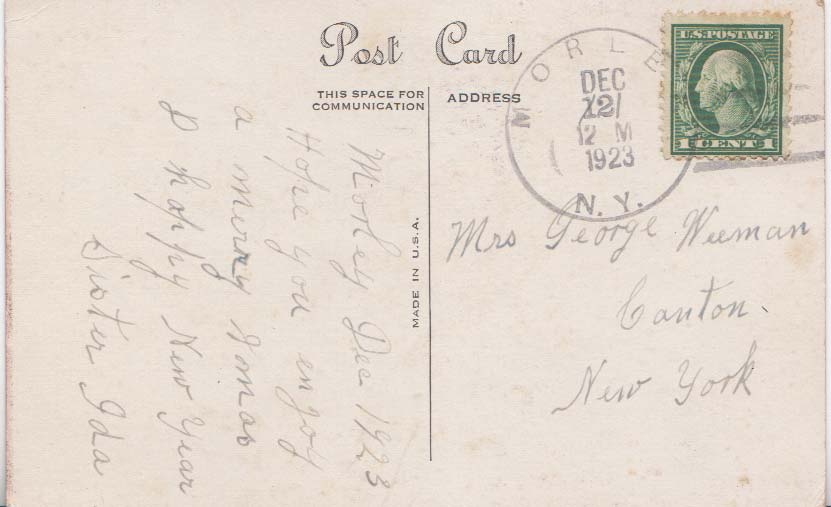 Post Card
THIS SPACE FOR
COMMUNICATION
ADDRESS
MORLE
DEC
12
12 M
1923
N.Y.
U.S. POSTAGE
1 CENT 1
MADE IN U.S.A.
Morley Dec 1923
Hope you enjoy
a merry Xmas
& happy New Year
Sister Ida
Mrs George Weeman
Canton.
New York